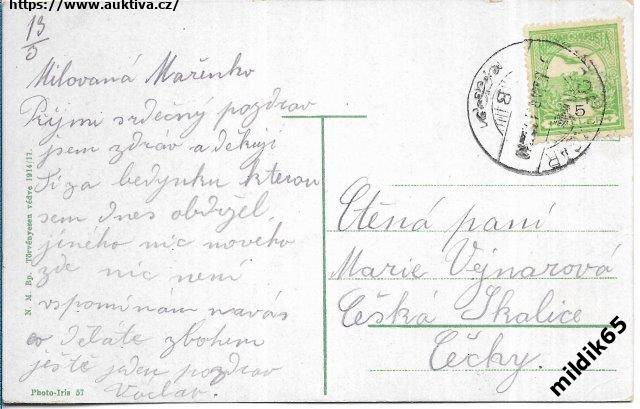 https://www.auktiva.cz/
13/5
Milovaná Mařenko
Přijmi srdečný pozdrav
jsem zdráv a děkuji
Ti za bedýnku kterou
sem dnes obdržel,
jiného nic nového
zde nic není
vspomínám na vás
co děláte zbohem
ještě jeden pozdrav
Václav.
N. M. Bp. Törvényesen védve 1914/17.
Photo-Iris 57
5
Ctěná paní
Marie Vejnarová
Česká Skalice
Čechy.
mildik65